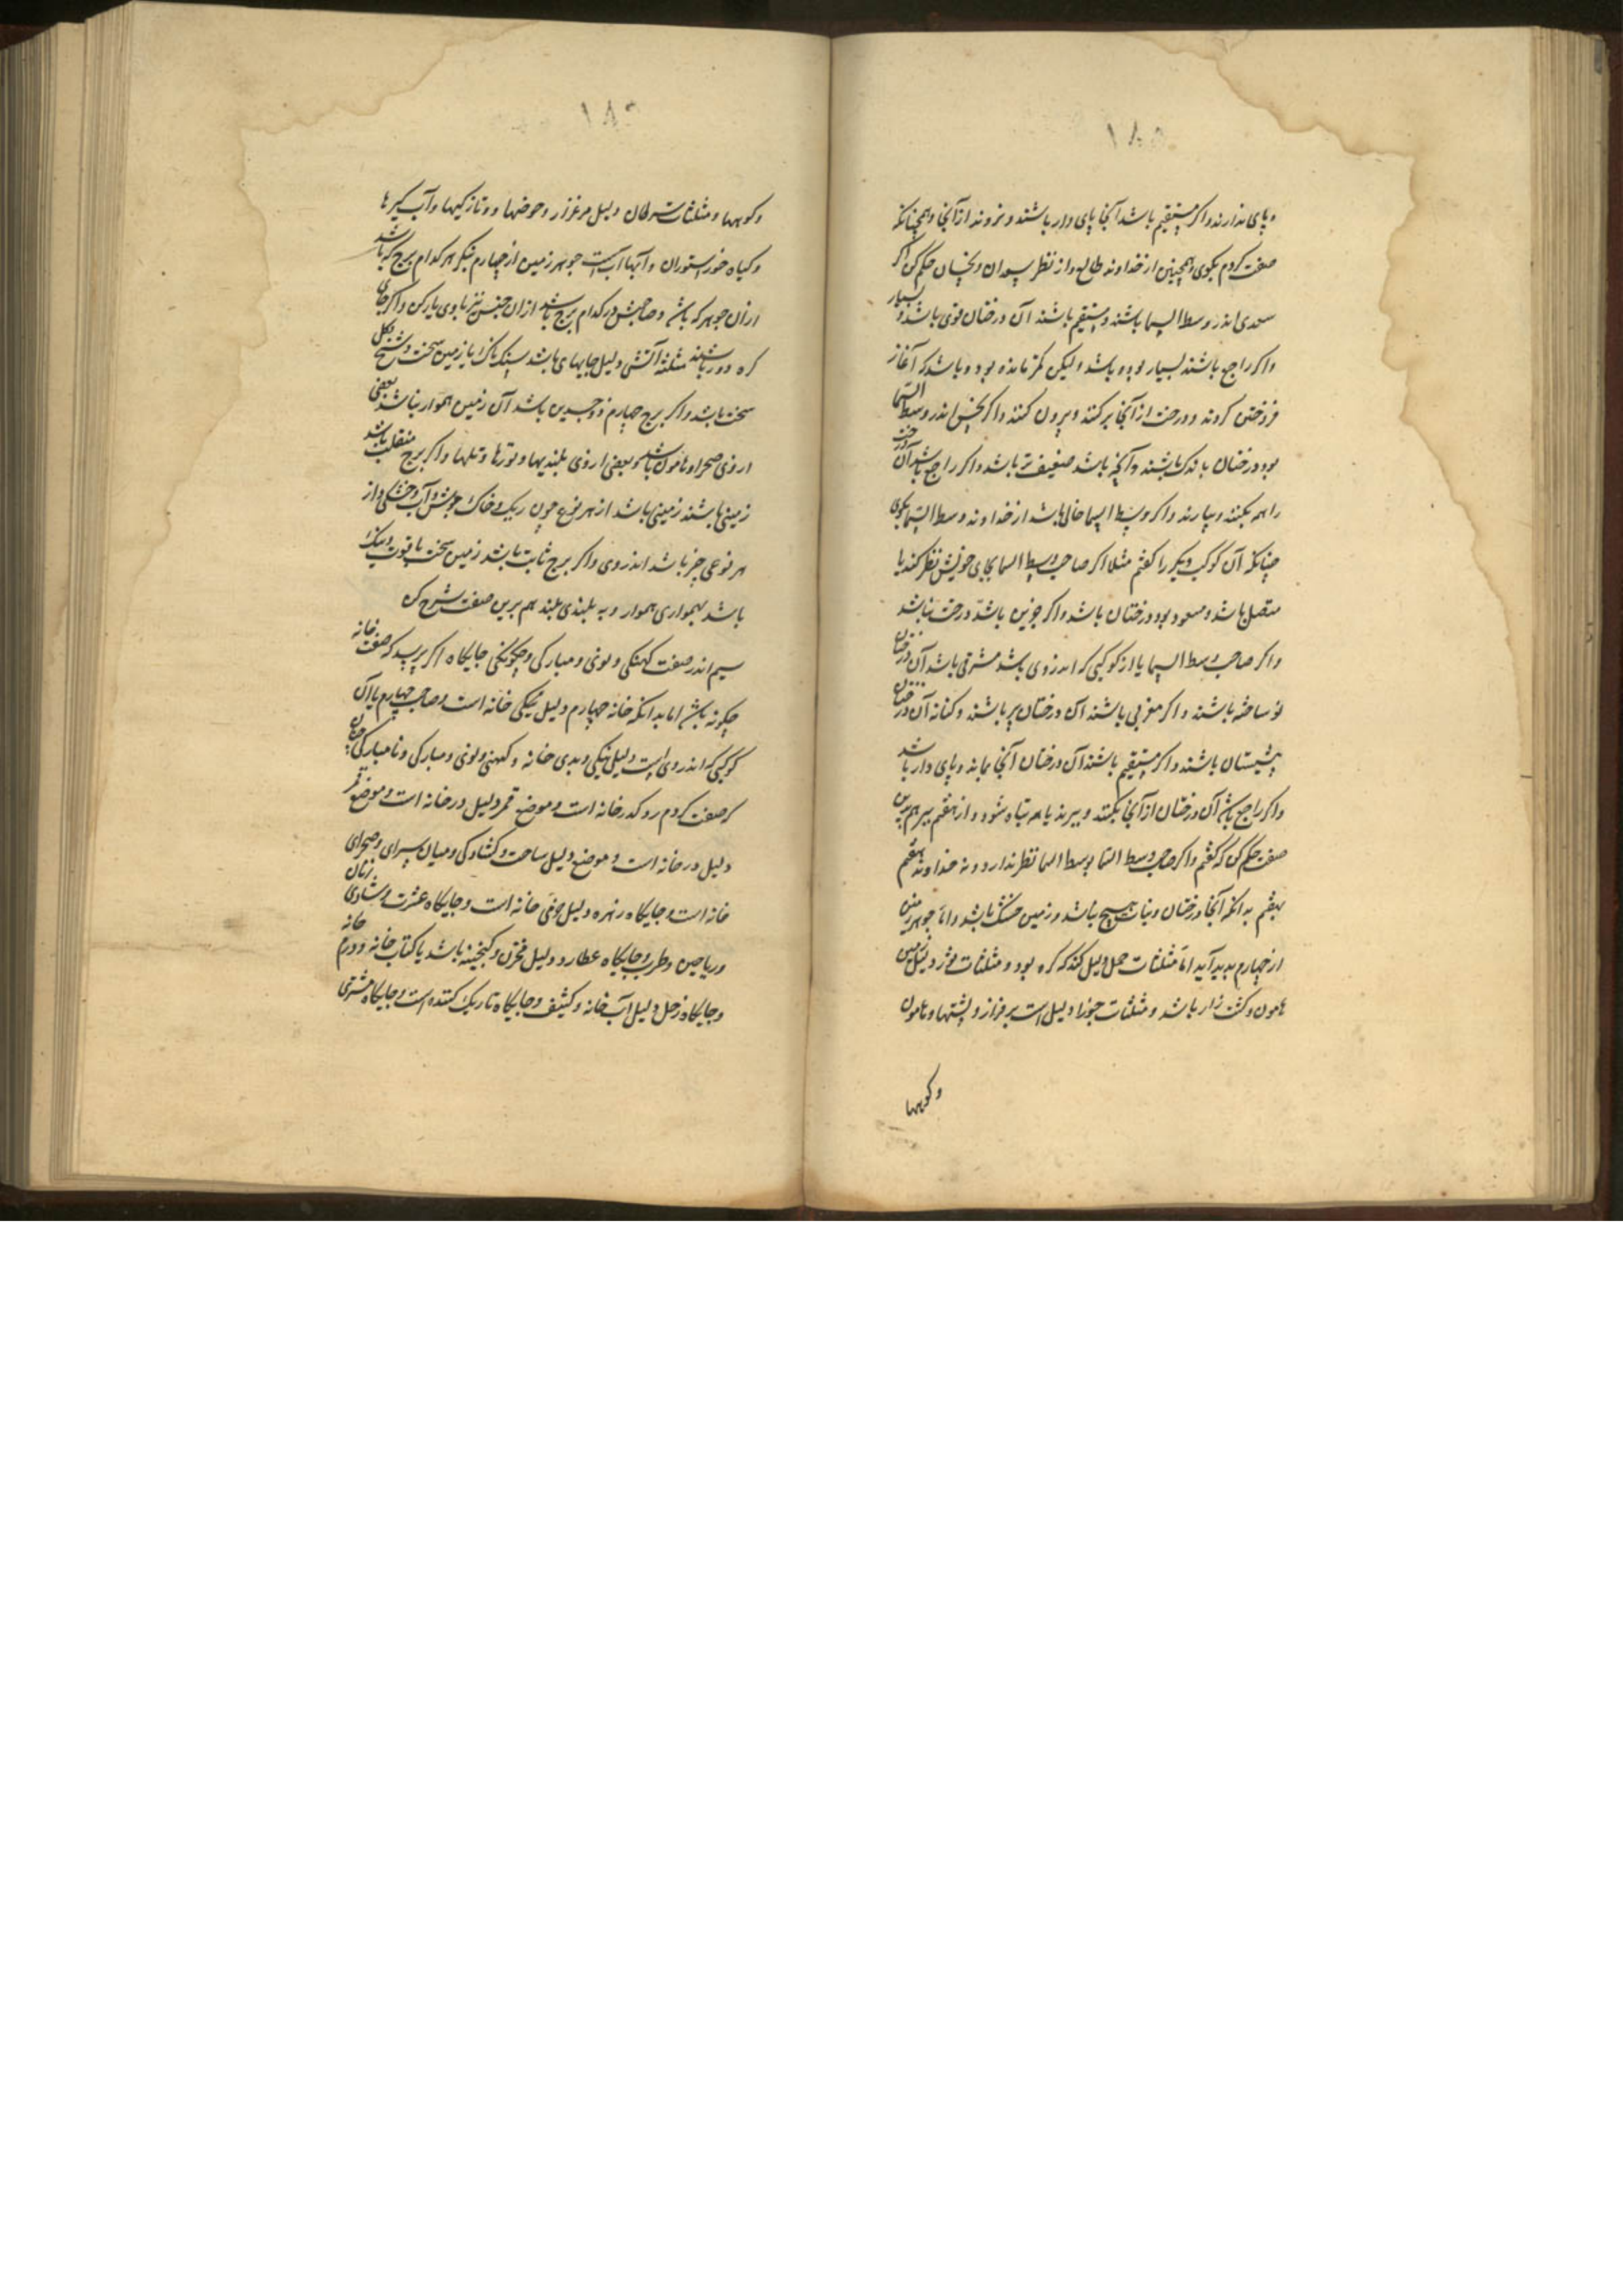 ۱۸۵
و پای ندارند و اگر مستقیم باشد آنجا پای دار باشند و نروند از آنجا و همچنانکه
صفت کردم بگوی و همچنین از خداوند طالع و از نظر سعدان و نحسان حکم کن اگر
سعدی اندر وسط السما باشند و مستقیم باشند آن درختان قوی باشد و بسیار
و اگر راجع باشند بسیار بوده باشد ولیکن کمتر مانده بود و باشد که آغاز
فروختن کردند و درخت از آنجا برکنند و بیرون کنند و اگر نحس اندر وسط السما
بود درختان باندک باشند و آنچه باشد ضعیف تر باشد و اگر راجع باشد آن درخت
را همه بکنند و ببارند و اگر وسط السما خالی باشد از خداوند وسط السما بگوی
چنانکه آن کوکب دیگر را گفتم مثلا اگر صاحب وسط السما بجای خویش نظر کند یا
متصل باشد و مسعود بود درختان باشد و اگر چونین باشد درخت نباشد
و اگر صاحب وسط السما یا از کوکبی که اندر وی باشد مشرقی باشد آن درختان
نو ساخته باشند و اگر مغربی باشند آن درختان پیر باشند و کنانه آن درختان
پیشستان باشند و اگر مستقیم باشند آن درختان آنجا بماند و پای دار باشد
و اگر راجع باشد آن درختان از آنجا بکنند و ببرند یا همه تباه شود و از هفتم ببر هم برین
صفت حکم کن که گفتم و اگر صاحب وسط السما بوسط السما نظر ندارد و نه خداوند هفتم
بهفتم بدانکه آنجا درختان و نبات هیچ نباشد و زمین خشک باشد و اما جوهر زمین
از چهارم بدید آید اما مثلثات حمل دلیل کند که کره بود و مثلثات ثور دلیل زمین
هامون و کشت زار باشد و مثلثات جوزا دلیل است بر فراز و پشتها و هامون
و کوهها
۱۸۶
و کوهها و مثلثات سرطان دلیل مرغزار و حوضها و تازگیها و آب گیرها
و گیاه خور ستوران و آبها است جوهر زمین از چهارم بنگر هر کدام برج که باشد
از آن جوهر که باشد و صاحبش در کدام برج باشد از آن جنس نیز با وی یار کن و اگر جای
کره دور باشند مثلثه آتشی دلیل جایهای باشد سنگ ناک یا زمین سخت و شخ
سخت باشد و اگر برج چهارم ذوجسدین باشد آن زمین هموار نباشد بعضی
از وی صحرا و هامون باشد و بعضی از وی بلندیها و تلها و اگر برج منقلب باشد
زمینی باشند زمینی باشد از هر نوع چون ریک و خاک خوش و آب و خشکی و از
هر نوعی چیز باشد اندر وی و اگر برج ثابت باشد زمین سخت با قوت و سنگ
باشد بهمواری هموار و به بلندی بلند هم برین صفت شرح کن
سیم اندر صفت کهنگی و نوی و مبارکی و چگونگی جایگاه اگر پرسید که صفت خانه
چگونه باشد اما بدانکه خانه چهارم دلیل نیکی خانه است و صاحب چهارم یا آن
کوکبی که اندر وی است دلیل نیکی و بدی خانه و کهنی و نوی و مبارکی و نامبارکی چنان
که صفت کردم رو کدر خانه است و موضع قمر دلیل در خانه است و موضع قمر
دلیل در خانه است و موضع دلیل ساحت و گشادگی و میان سرای و صحرای
خانه است و جایگاه زهره دلیل خوشی خانه است و جایگاه عشرت و شادی زنان
و ریاحین و طرب و جایگاه عطارد دلیل مخزن و گنجینه باشد یا کتاب خانه و درم خانه
و جایگاه زحل دلیل آب خانه و کثیف و جایگاه تاریک کننده است و جایگاه مشتری